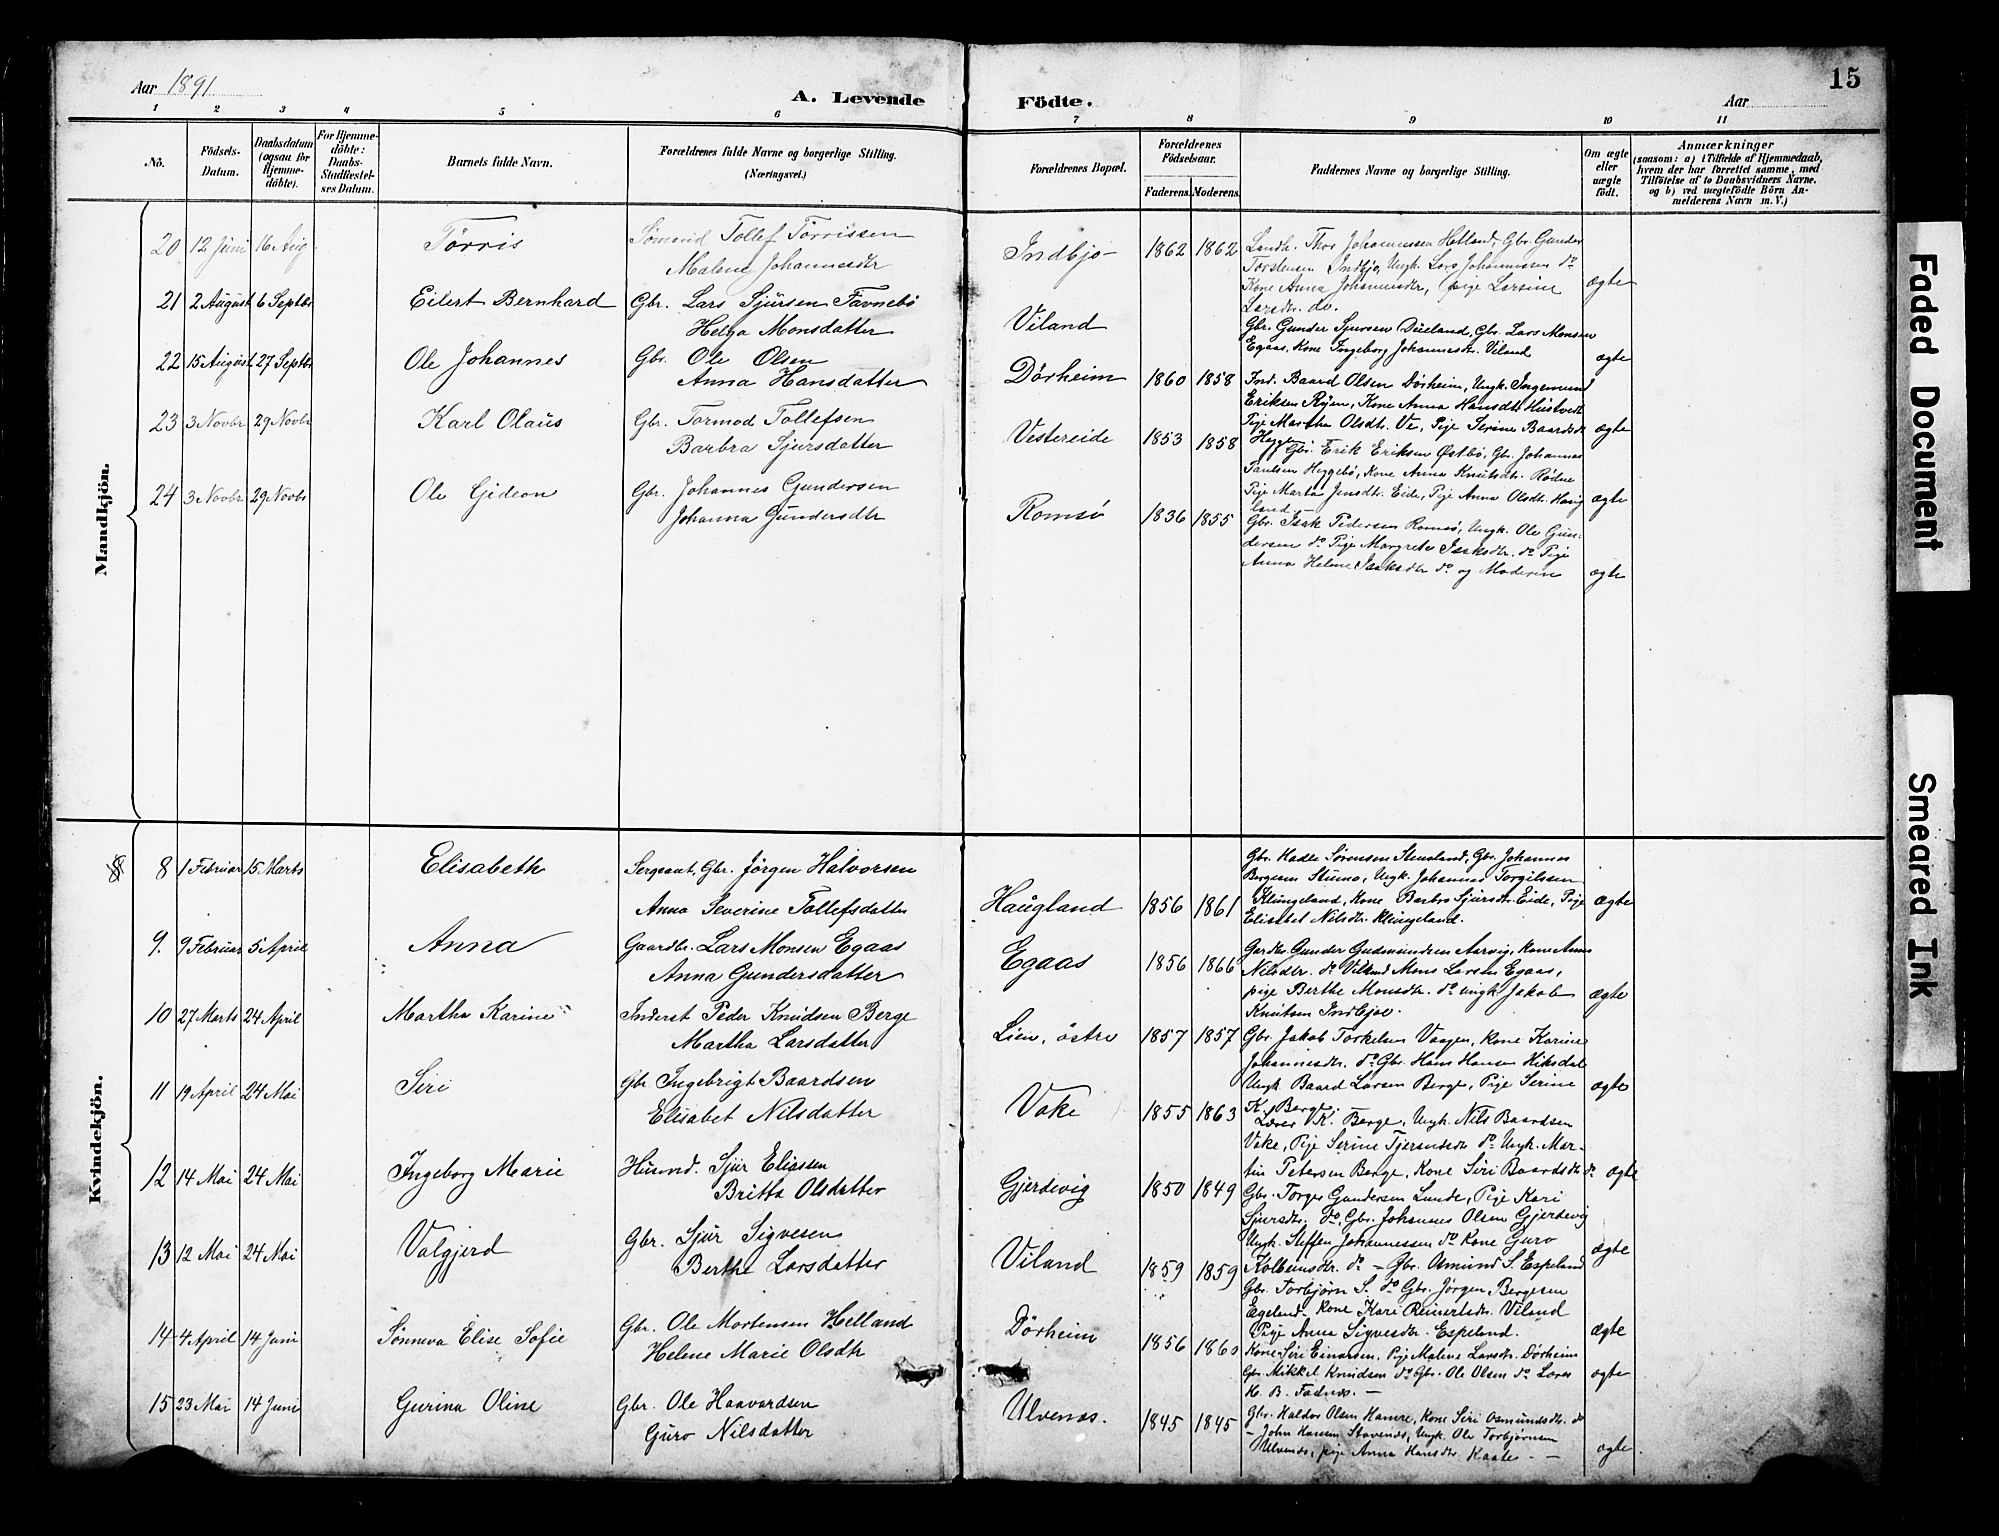 Aar 1891
A. Levende Födte.
Aar
15
1 2 3 4 5 6 7 8 9 10 11
No.
Födsels-Datum.
Daabsdatum (ogsaa for Hjemme-döbte).
For Hjemme-döbte: Daabs-Stadfæstel-ses Datum.
Barnets fulde Navn.
Forældrenes fulde Navne og borgerlige Stilling.
(Næringsvei.)
Forældrenes Bopæl.
Forældrenes Födselsaar.
Faderens. Moderens.
Faddernes Navne og borgerlige Stilling.
Om ægte eller uægte födt.
Anmærkninger
(saasom: a) i Tilfælde af Hjemmedaab, hvem der har forrettet samme, med Tilföielse af to Daabsvidners Navne, og b) ved uægtefödte Börn An-melderens Navn m. V.)
Mandkjön.
20 12 Juni 16 Aug Tørris Sømand Tollef Tørrissen
Malene Johannesdtr Indbjo 1862 1862
Landh. Thor Johannessen Hetland, Gbr. Gunder
Torstensen Indbjo, Ungk. Lars Johannessen do
Kone Anna Johannesdtr, pige Larsine
Larsdtr. do. ægte
21 2 August 6 Septbr Eilert Bernhard Gbr. Lars Sjursen
Helga Monsdatter Viland
Gbr. Gunder Sjursen Dueland, Gbr. Lars Monsen
Egaas, Kone Ingeborg Johannesdtr. Viland ægte
22 15 August 27 Septbr Ole Johannes Gbr. Ole Olsen
Anna Hansdatter Dørheim 1860 1858
Ind. Baard Olsen Dørheim, Ungk. Ingemund
Eriksen Ryen, Kone Anna Hansdtr Hustvedt
Pige Martha Olsdtr. Ve, Pige Serine Baardsdtr
Hegge ægte
23 3 Novbr 29 Novbr Karl Olaus Gbr. Tormod Tollefsen
Barbra Sjursdatter Vestereide 1853 1858
Gbr. Erik Eriksen Østbø, Gbr. Johannes
Paulsen Heggebø, Kone Anna Knutsdtr. Rødne
Pige Marta Jensdtr. Eide, Pige Anna Olsdtr. Haug
land ægte
24 3 Novbr 29 Novbr Ole Gideon Gbr. Johannes Gundersen
Johanna Gundersdtr Romsø 1836 1855
Gbr. Isak Pedersen Romsø, Ungk. Ole Gun-
dersen do Pige Margrete Isaksdtr. do Pige
Anna Helene Isaksdtr do og Moderen ægte
Kvindekjön.
8 1 Februar 15 Marts Elisabeth Sergeant, Gbr. Jörgen Halvorsen
Anna Severine Tollefsdatter Haugland 1856 1861
Gbr. Hadle Sørensen Stensland, Gbr. Johannes
Bergesen Stumo, Ungk. Johannes Torgilsen
Klungeland, Kone Barbro Sjursdtr. Eide, Pige
Elisabet Nilsdtr. Klungeland. ægte
9. 9 Februar 5 April Anna Gaardbr. Lars Monsen Egaas
Anna Gundersdatter Egaas 1856 1866
Gardbr Gunder Gudmundsen Aarvig, Kone Anna
Nilsdtr. do Viland Mons Larsen Egaas,
pige Berthe Monsdtr. do ungk Jakob
Knutsen Indbjoe. ægte
10 27 Marts 24 April Martha Karine Inderst Peder Knudsen Berge
Martha Larsdatter Lien, østre 1857 1857
Gbr. Jakob Torkelsen Vaagen, Kone Karine
Johannesdtr. do Gbr. Hans Hansen Hiksdal
Ungk. Baard Larsen Berge, Pige Serine
K. Berge ægte
11 19 April 24 Mai Siri Gbr Ingebrigt Baardsen
Elisabet Nilsdatter Vake 1855 1863
Lærer K. Berge, Ungk. Nils Baardsen
Vake, Pige Serine Tjerandsdtr do Ungk. Mar-
tin Petersen Berge, Kone Siri Baardsdtr do ægte
12 14 Mai 24 Mai Ingeborg Marie Husmd. Sjur Eliassen
Britta Olsdatter Gjerdevig 1850 1849
Gbr. Torger Gundersen Lunde, Pige Kari
Sjursdtr. do, Gbr. Johannes Olsen Gjerdevig
Ungk. Steffen Johannessen do Kone Guro
Kolbeinsdtr. do ægte
13 12 Mai 24 Mai Valgjerd Gbr. Sjur Sigvesen
Berthe Larsdatter Viland 1859 1859
Gbr. Amund S. Espeland
Gbr. Torbjørn S. do Gbr. Jörgen Bergesen
Egeland Kone Kari Reinertsdtr. Viland
Pige Anna Sigvesdtr. Espeland. ægte
14 4 April 14 Juni Sønneva Elise Sofie Gbr. Ole Mortensen Helland
Helene Marie Olsdtr Dørheim 1856 1860
Kone Siri Einarsen, Pige Malene Larsdtr. Dörheim
Gbr. Mikkel Knudsen do Gbr. Ole Olsen do Lærer
H. B. Fadnes. ægte
15 23 Mai 14 Juni Gurina Oline Gbr. Ole Haavardsen
Guro Nilsdatter Ulvenes. 1845 1845
Gbr. Haldor Olsen Hamre, Kone Siri Osmundsdtr. do
John Hansen Stavenes, Ungk. Ole Torbjørnsen
Ulvenes, pige Anna Hansdtr. Kaate ægte
Faded Document
Smeared Ink